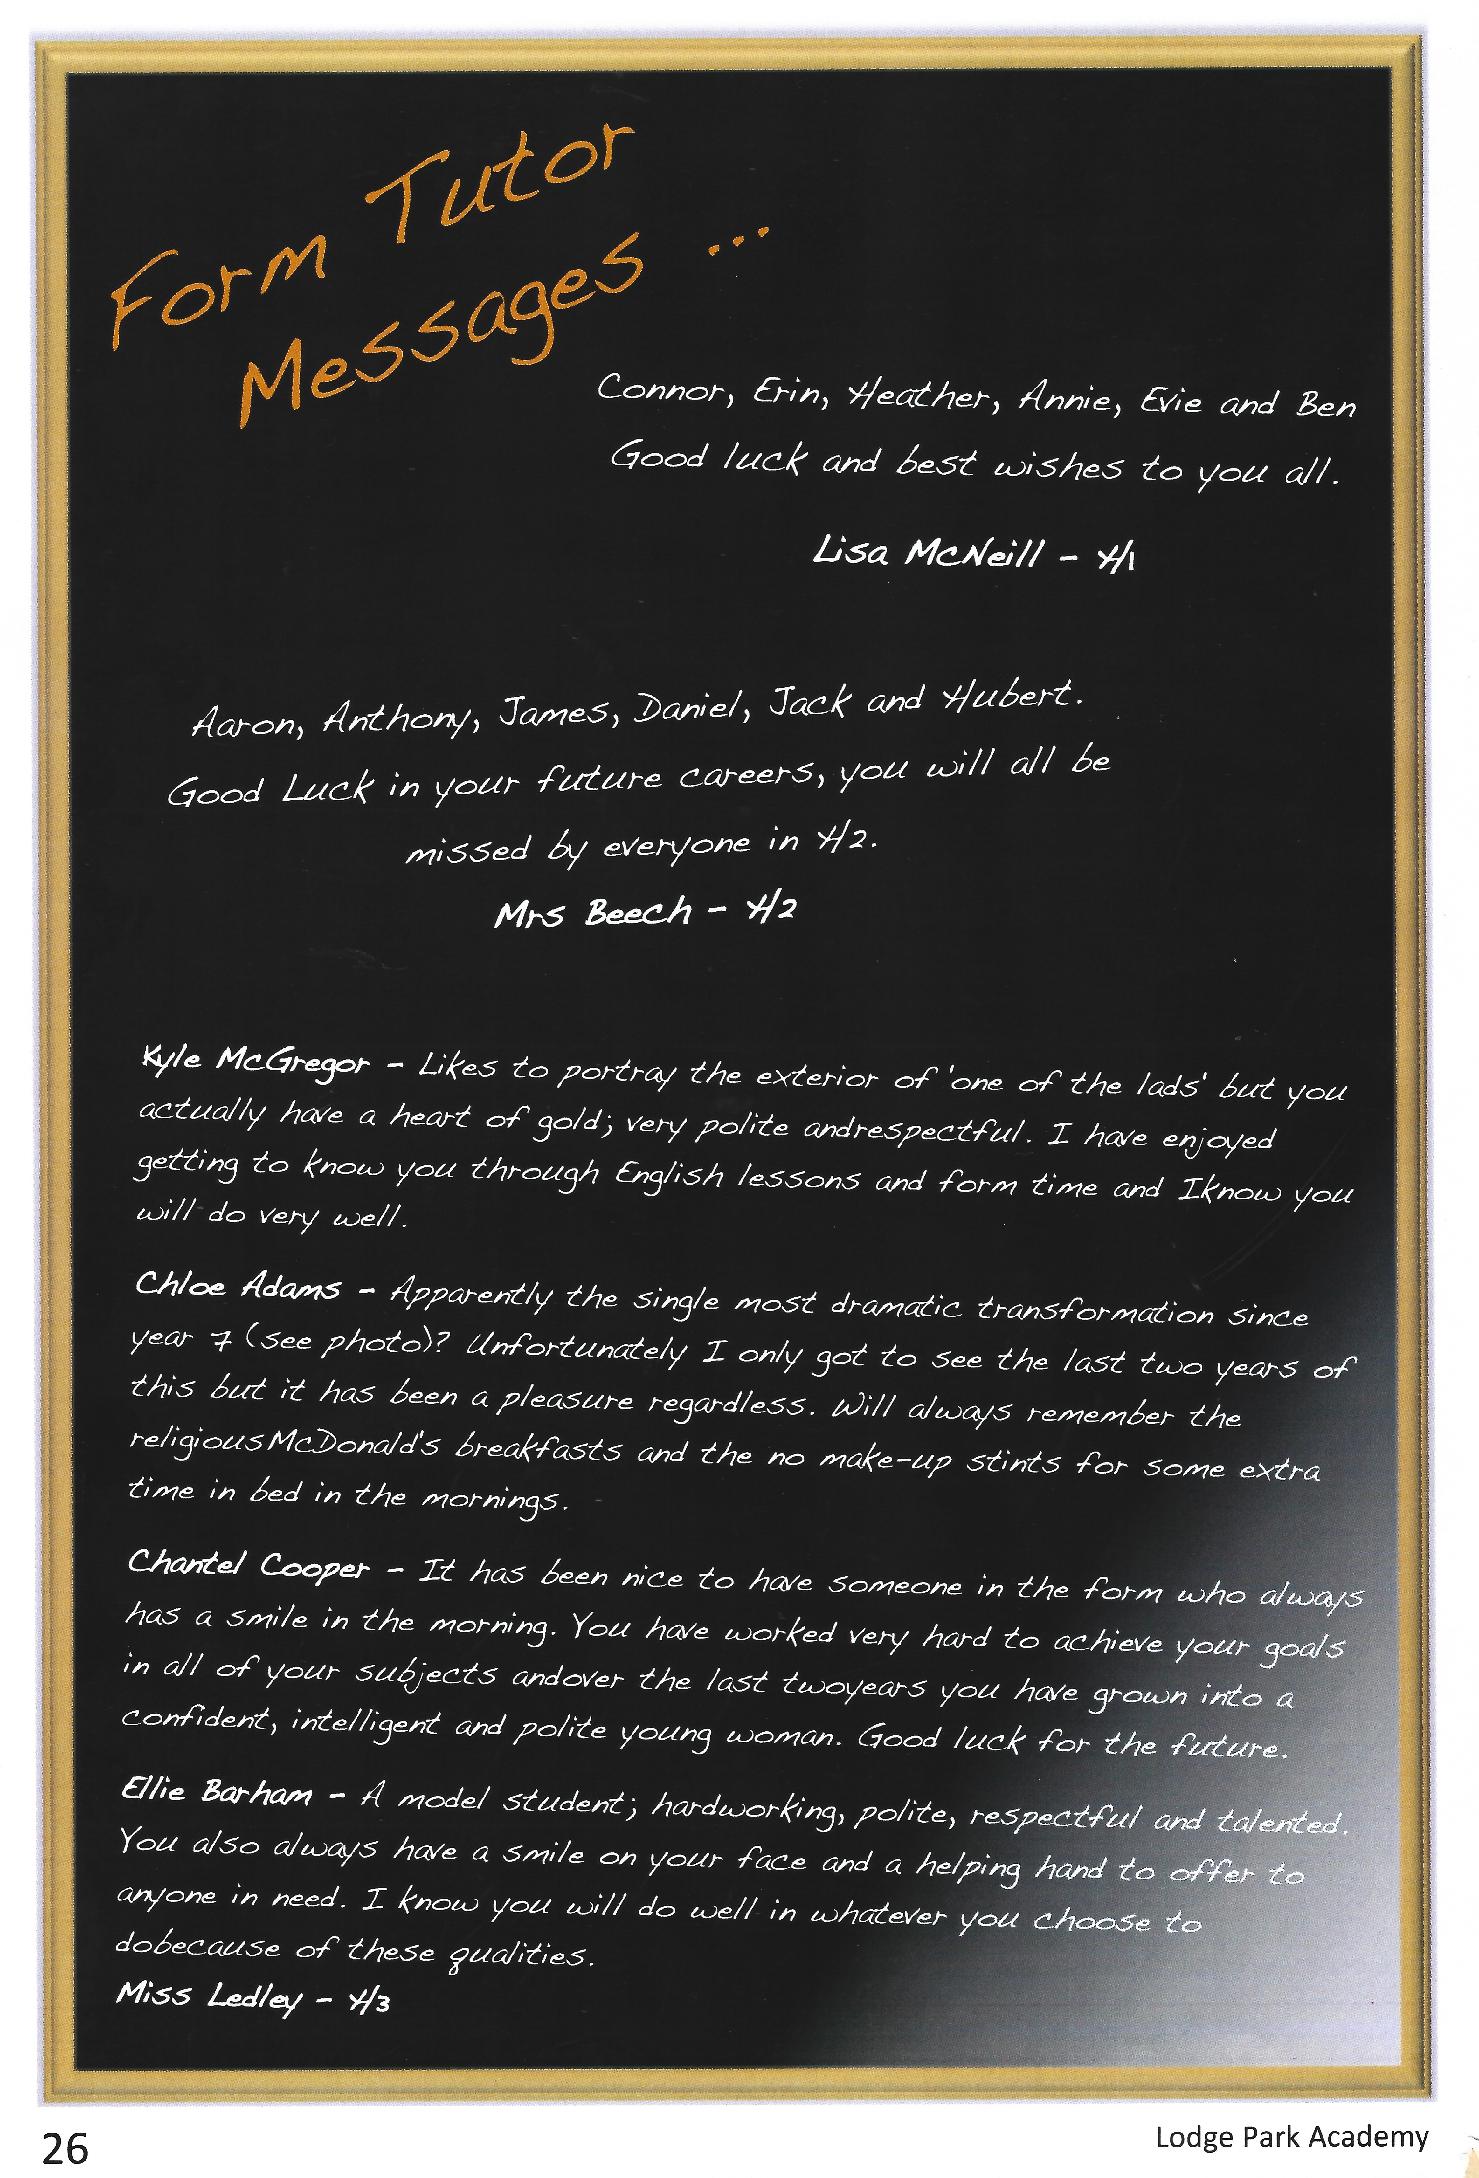 Form Tutor
Messages ...
Connor, Erin, Heather, Annie, Evie and Ben
Good luck and best wishes to you all.
Lisa McNeill - H1
Aaron, Anthony, James, Daniel, Jack and Hubert.
Good Luck in your future careers, you will all be
missed by everyone in H2.
Mrs Beech - H2
Kyle McGregor - Likes to portray the exterior of 'one of the lads' but you
actually have a heart of gold; very polite andrespectful. I have enjoyed
getting to know you through English lessons and form time and Iknow you
will do very well.
Chloe Adams - Apparently the single most dramatic transformation since
year 7 (see photo)? Unfortunately I only got to see the last two years of
this but it has been a pleasure regardless. Will always remember the
religiousMcDonald's breakfasts and the no make-up stints for some extra
time in bed in the mornings.
Chantel Cooper - It has been nice to have someone in the form who always
has a smile in the morning. You have worked very hard to achieve your goals
in all of your subjects andover the last twoyears you have grown into a
confident, intelligent and polite young woman. Good luck for the future.
Ellie Barham - A model student; hardworking, polite, respectful and talented.
You also always have a smile on your face and a helping hand to offer to
anyone in need. I know you will do well in whatever you choose to
dobecause of these qualities.
Miss Ledley - H3
26
Lodge Park Academy